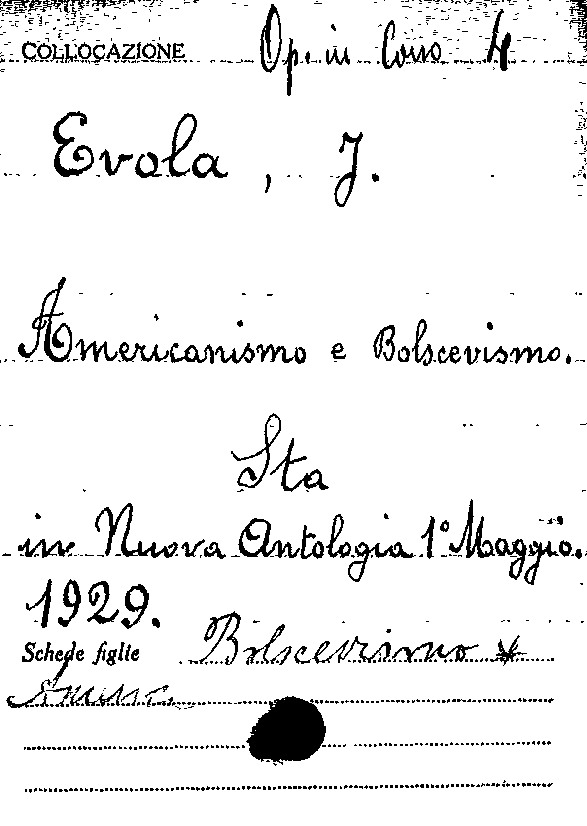 COLLOCAZIONE Op. in Corso 4
Evola, J.
Americanismo e Bolscevismo.
Sta
in Nuova Antologia 1° Maggio.
1929.
Schede figlie Bolscevismo *